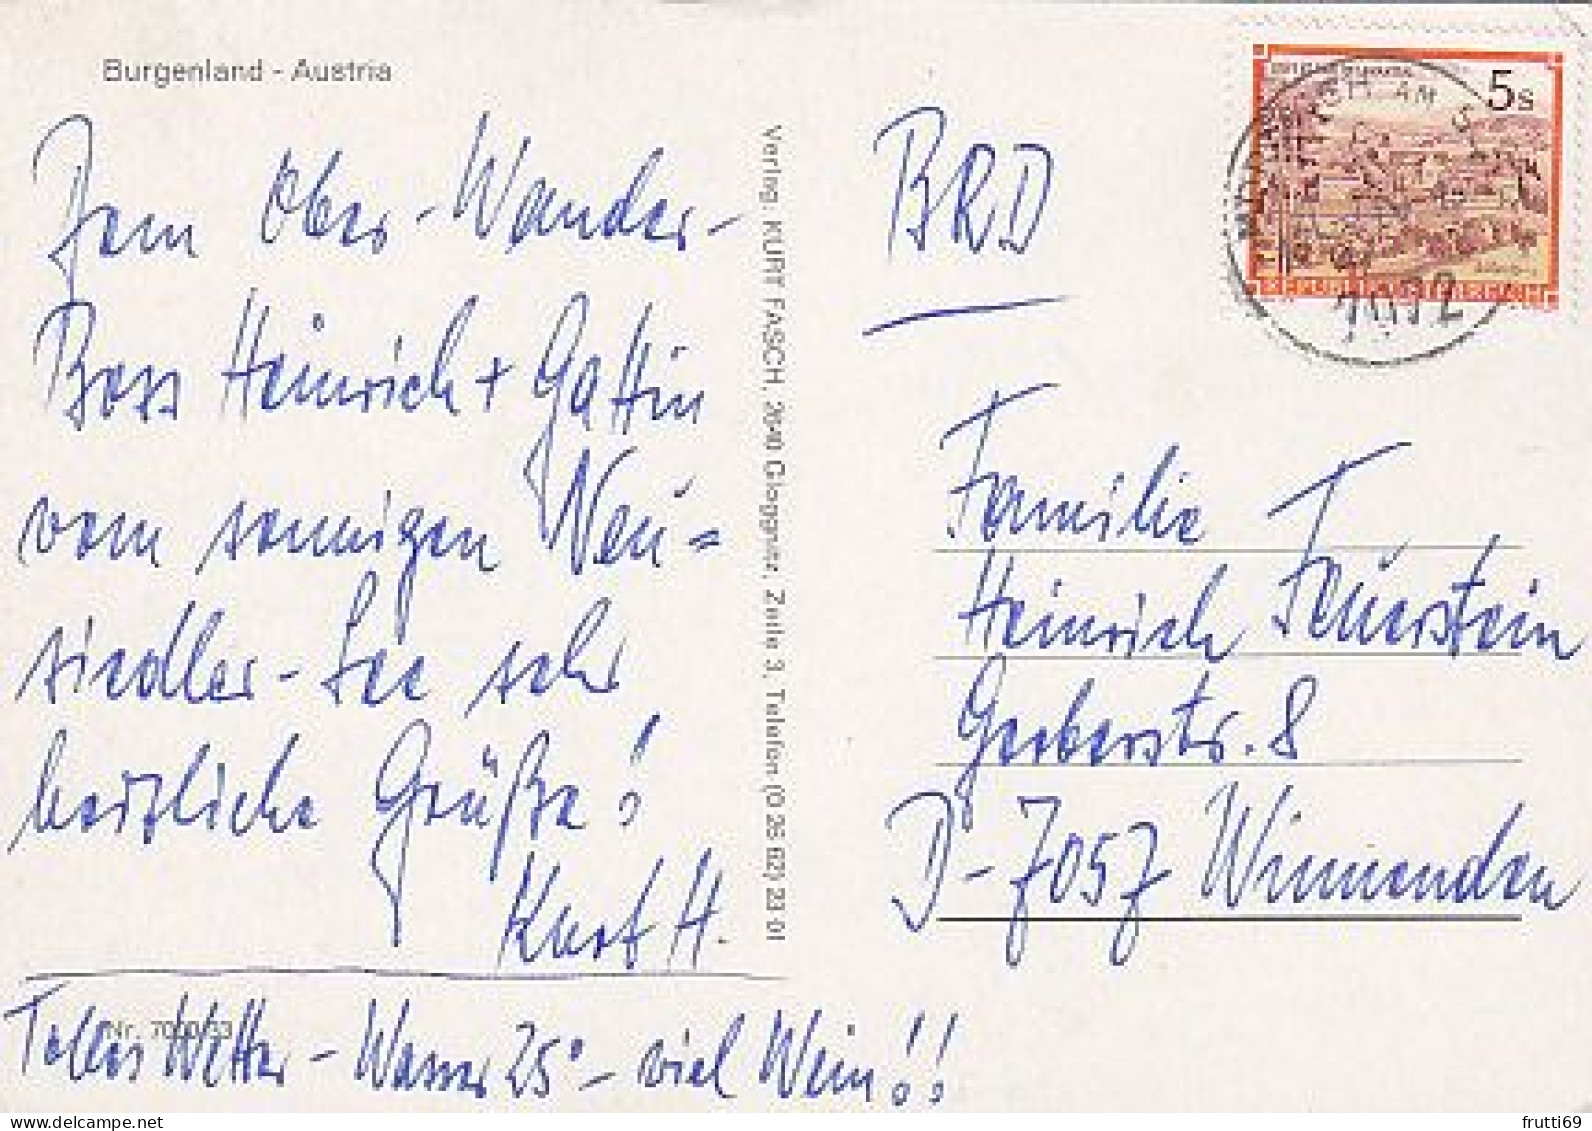 Burgenland - Austria
Dem Ober-Wander-
Boss Heinrich + Gattin
vom sonnigen Neu=
siedler-See sehr
herzliche Grüße!
Kurt H.
Nr. 7000/53
Tolles Wetter - Wasser 25° - viel Wein!!
Verlag: KURT FASCH, 2640 Gloggnitz, Zeile 3, Telefon (0 26 62) 23 01
BRD
5s
REPUBLIK ÖSTERREICH
AM
7072
Familie
Heinrich Feuerstein
Gerberstr. 8
D-7057 Winnenden
frutti69